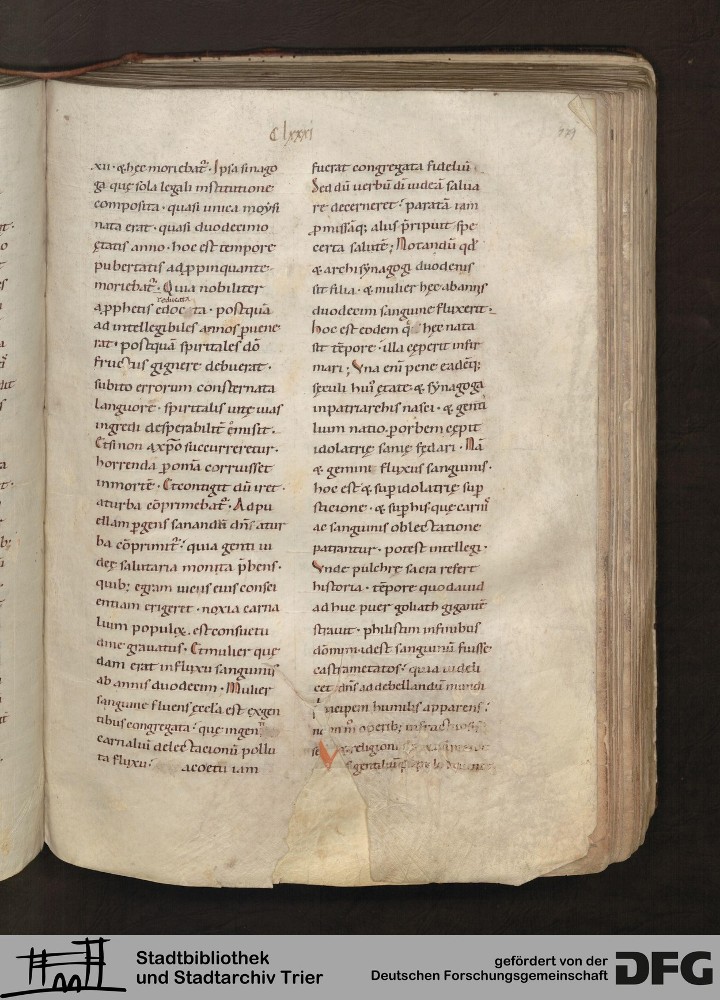 Clxxxi
xii · & hęc moriebat᷑ · Ipsa sinago
ga quę sola legali institutione
composita · quasi unica moẏsi
nata erat · quasi duodecimo
ętatis anno · hoc est tempore
pubertatis adp̱pinquante ·
moriebat᷑ · Quia nobiliter
educata
ap̱phetis edocta · postquā
ad intellegibiles annos puene
rat · postquā spiritales dō
fructus gignere debuerat ·
subito errorum consternata
languore · spiritalis uitę uias
ingredi desperabilit̄ omisit ·
Et si non a xp̄o succurreretur ·
horrenda ꝑ om̄ia corruisset
in morte · Et contigit dū iret ·
a turba cōprimebat᷑ · Ad pu
ellam ꝑgens sanandā dn̄s a tur
ba cōprimit᷑ · quia genti iu
dęę salutaria monita p̄bens ·
quib; egram uiciis eius consci
entiam erigeret · noxia carna
lium populoꝝ est consuetu
dine grauatus · Et mulier quę
dam erat in fluxu sanguinis
ab annis duodecim · Mulier
sanguine fluens ęccla est ex gen
tibus congregata · quę ingen
carnaliū delectacionū pollu
ta fluxu · a coetu iam
fuerat congregata fidelium
Sed dū uerbū dī iudeā salua
re decerneret · paratā iam
ꝓmissāq; aliis p̄ripuit spe
certa salutē; Notandū qd̄
& archisẏnagogi duodenis
sit filia · & mulier hęc ab annis
duodecim sanguine fluxerit ·
hoc est eodem quo hęc nata
sit tēpore · illa cęperit infir
mari; Una eni pene eadēq;
sęculi hui᷒ ętate & sẏnagoga
in patriarchis nasci · & genti
lium natio ꝑ orbem cępit
idolatrię sanię fędari · Nā
& gemini fluxus sanguinis ·
hoc est & sup idolatrię sup
sticione · & sup his que carnis
ac sanguinis oblectatione
patrantur · potest intellegi ·
Unde pulchrę sacra refert
historia · tēpore quo dauid
ad huc puer goliath gigantē
strauit · philistim in finibus
dōmim id est sanguinū fuisse
castrametatos · quia uideli
cet dn̄s ad debellandū mundi
principem humilis apparens ·